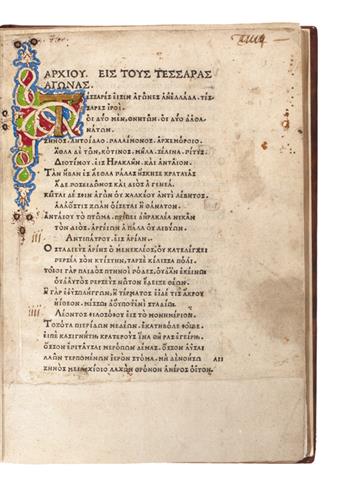 ΑΡΧΙΟΥ. ΕΙΣ ΤΟΥΣ ΤΕΣΣΑΡΑΣ
ΑΓΩΝΑΣ.
ΤΕΣΣΑΡΕΣ ΕΙΣΙΝ ΑΓΩΝΕΣ ΑΝ ΕΛΛΑΔΑ, ΤΕΣ
ΣΑΡΕΣ ΙΡΟΙ
ΟΙ ΔΥΟ ΜΕΝ, ΘΝΗΤΩΝ, ΟΙ ΔΥΟ ΔΑΘΑ
ΝΑΤΩΝ.
ΖΗΝΟΣ, ΛΗΤΟΙΔΑΟ, ΠΑΛΑΙΜΟΝΟΣ, ΑΡΧΕΜΟΡΟΙΟ
ΑΘΛΑ ΔΕ ΤΩΝ, ΚΟΤΙΝΟΣ, ΜΗΛΑ, ΣΕΛΙΝΑ, ΠΙΤΥΣ
ΔΙΟΤΙΜΟΥ. ΕΙΣ ΗΡΑΚΛΗΝ ΚΑΙ ΑΝΤΑΙΟΝ.
ΤΑΝ ΗΒΑΝ ΕΣ ΑΕΘΛΑ ΠΑΛΑΣ ΗΣΚΗΣΕ ΚΡΑΤΑΙΑΣ
ΑΔΕ ΠΟΣΕΙΔΩΝΟΣ ΚΑΙ ΔΙΟΣ Α ΓΕΝΕΑ.
ΚΕΙΤΑΙ ΔΕ ΣΦΙΝ ΑΓΩΝ ΟΥ ΧΑΛΚΕΟΥ ΑΜΦΙ ΛΕΒΗΤΟΣ,
ΑΛΛΟΣΤΙΣ ΖΩΑΝ ΟΙΣΕΤΑΙ Η ΘΑΝΑΤΟΝ.
ΑΝΤΑΙΟΥ ΤΟ ΠΤΩΜΑ. ΠΡΕΠΕΙ ΔΗΡΑΚΛΕΑ ΝΙΚΑΝ
ΤΟΝ ΔΙΟΣ. ΑΡΓΕΙΩΝ Α ΠΑΛΑ ΟΥ ΛΙΒΥΩΝ.
ΑΝΤΙΠΑΤΡΟΥ. ΕΙΣ ΑΡΙΑΝ.
Ο ΣΤΑΔΙΕΥΣ ΑΡΙΗΣ Ο ΜΕΝΕΚΛΕΟΣ, ΟΥ ΚΑΤΕΛΕΓΧΕΙ
ΠΕΡΣΕΑ ΣΟΝ ΚΤΙΣΤΗΝ, ΤΑΡΣΕ ΚΙΛΙΣΣΑ ΠΟΛΙ.
ΤΟΙΟΙ ΓΑΡ ΠΑΙΔΟΣ ΠΤΗΝΟΙ ΠΟΔΕΣ, ΟΥΔΑΝ ΕΚΕΙΝΩ
ΟΥΔΑΥΤΟΣ ΠΕΡΣΕΥΣ ΝΩΤΟΝ ΕΔΕΙΞΕ ΘΕΩΝ.
Η ΓΑΡ ΕΦΥΣΠΛΗΓΓΩΝ, Η ΤΕΡΜΑΤΟΣ ΕΙΔΕ ΤΙΣ ΑΚΡΟΥ
ΗΙΘΕΟΝ. ΜΕΣΣΩ ΔΟΥΠΟΤΕΝΙ ΣΤΑΔΙΩ.
ΛΕΟΝΤΟΣ ΦΙΛΟΣΟΦΟΥ ΕΙΣ ΤΟ ΜΟΝΗΜΕΡΙΟΝ.
ΤΟΞΟΤΑ ΠΙΕΡΙΔΩΝ ΜΕΔΕΩΝ, ΕΚΑΤΗΒΟΛΕ ΦΟΙΒΕ,
ΕΙΠΕ ΚΑΣΙΓΝΗΤΗ, ΚΡΑΤΕΡΟΥΣ ΙΝΑ ΘΗΡΑΣ ΕΓΕΙΡΗ,
ΟΣΣΟΝ ΕΠΙΨΑΥΣΑΙ ΜΕΡΟΠΩΝ ΔΕΜΑΣ, ΟΣΣΟΝ ΑΥΣΑΙ
ΛΑΩΝ ΤΕΡΠΟΜΕΝΩΝ ΙΕΡΟΝ ΣΤΟΜΑ. ΜΗ ΔΕ ΝΟΗΣΩ AII
ΖΗΝΟΣ ΜΕΙΛΙΧΙΟΙΟ ΛΑΧΩΝ ΘΡΟΝΟΝ ΑΝΕΡΟΣ ΟΙΤΟΝ.